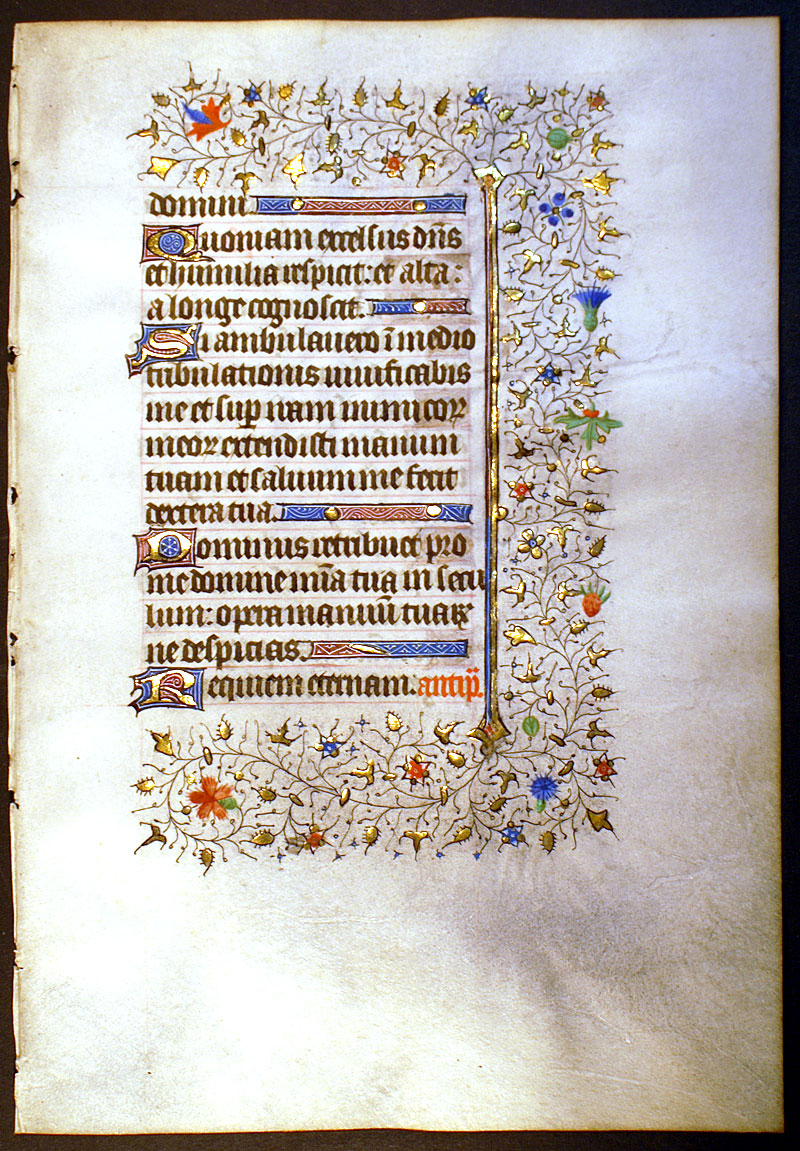 domini.
Quoniam excelsus dn̄s
et hūmilia respicit: et alta:
a longe cognoscit.
Si ambulavero ī medio
tribulationis vivificabis
me et sup̱ iram inimicoꝝ
meoꝝ extendisti manum
tuam et salvum me fecit
dextera tua.
Dominus retribuet pro
me domine mīa tua in secu
lum: opera manuū tuaꝝ
ne despicias.
Requiem eternam. antip̄.